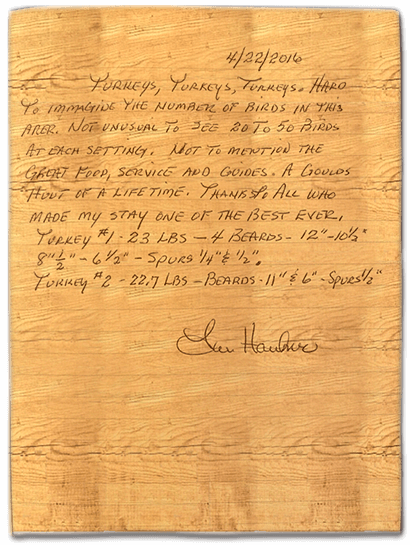 4/22/2016
TURKEYS, TURKEYS, TURKEYS. HARD
TO IMMAGINE THE NUMBER OF BIRDS IN THIS
AREA. NOT UNUSUAL TO SEE 20 TO 50 BIRDS
AT EACH SETTING. NOT TO MENTION THE
GREAT FOOD, SERVICE AND GUIDES. A GOULDS
HUNT OF A LIFETIME. THANKS TO ALL WHO
MADE MY STAY ONE OF THE BEST EVER.
TURKEY #1 - 23 LBS - 4 BEARDS - 12" - 10½"
8"½" - 6½" - SPURS ¼" & ½".
TURKEY #2 - 22.7 LBS - BEARDS - 11" & 6" - SPURS ½"